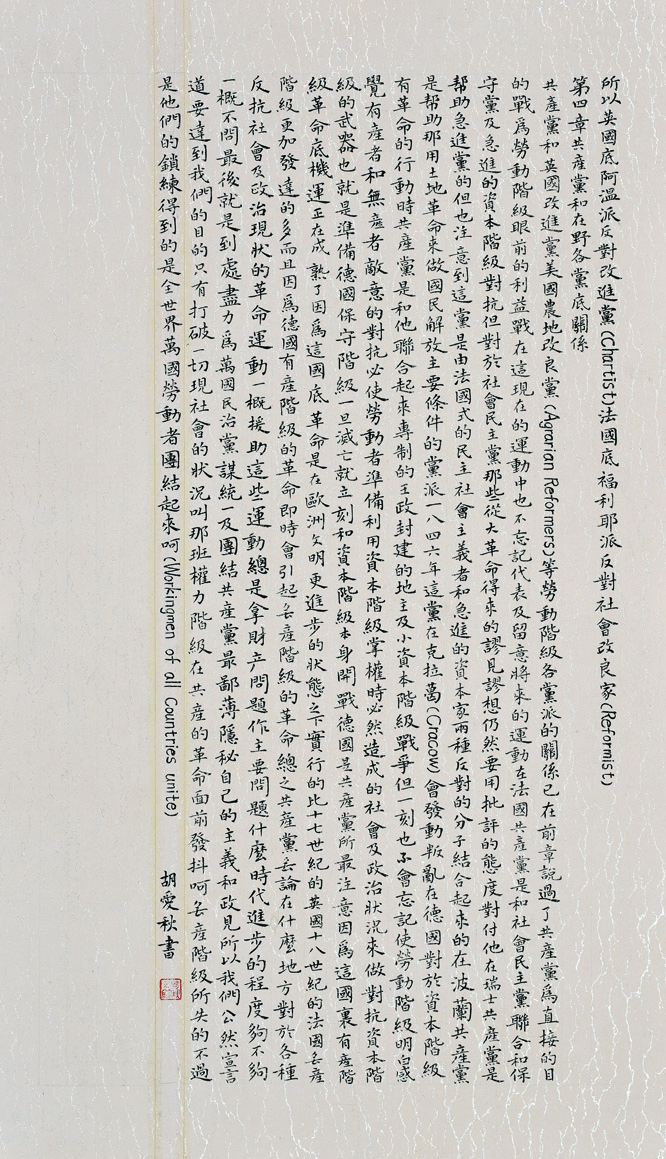 所以英國底阿温派反對改進黨(Chartist)法國底福利耶派反對社會改良家(Reformist)
第四章共產黨和在野各黨底關係
共產黨和英國改進黨美國農地改良黨(Agrarian Reformers)等勞動階級各黨派的關係已在前章說過了共產黨爲直接的目
的戰爲勞動階級眼前的利益戰在這現在的運動中也不忘記代表及留意將來的運動在法國共產黨是和社會民主黨聯合和保
守黨及急進的資本階級對抗但對於社會民主黨那些從大革命得來的謬見謬想仍然要用批評的態度對付他在瑞士共產黨是
幫助急進黨的但也注意到這黨是由法國式的民主社會主義者和急進的資本家兩種反對的分子結合起來的在波蘭共產黨
是帮助那用土地革命來做國民解放主要條件的黨派一八四六年這黨在克拉萬(Cracow)會發動叛亂在德國對於資本階級
有革命的行動時共產黨是和他聯合起來專制的王政封建的地主及小資本階級戰爭但一刻也不會忘記使勞動階級明白感
覺有產者和無產者敵意的對抗必使勞動者準備利用資本階級掌權時必然造成的社會及政治狀況來做對抗資本階
級的武器也就是準備德國保守階級一旦滅亡就立刻和資本階級本身開戰德國是共產黨所最注意因爲這國裏有產階
級革命底機運正在成熟了因爲這國底革命是在歐洲文明更進步的狀態之下實行的比十七世紀的英國十八世紀的法國無產
階級更加發達的多而且因爲德國有産階級的革命即時會引起無產階級的革命總之共產黨無論在什麽地方對於各種
反抗社會及政治現狀的革命運動一概援助這些運動總是拿財产問題作主要問題什麽時代進步的程度夠不夠
一概不問最後就是到處盡力爲萬國民治黨謀統一及團結共產黨最鄙薄隱秘自己的主義和政見所以我們公然宣言
道要達到我們的目的只有打破一切現社會的狀况叫那班權力階級在共產的革命面前發抖呵無產階級所失的不過
是他們的鎖練得到的是全世界萬國勞動者團結起來呵(Workingmen of all Countries unite)
胡愛秋書